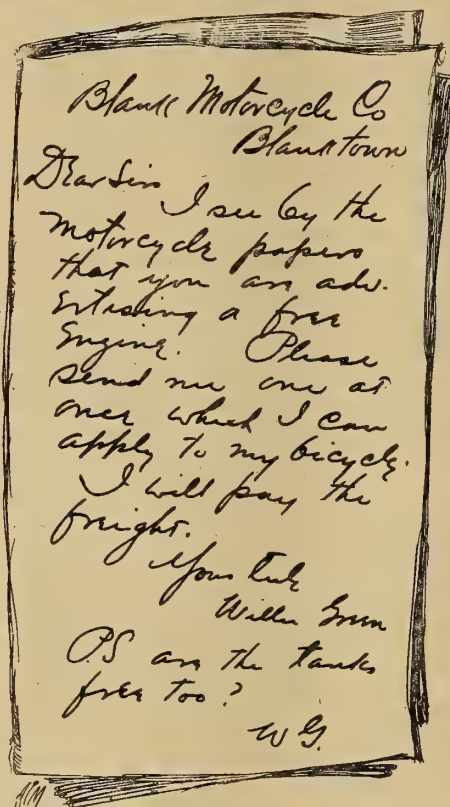 Blank Motorcycle Co
Blanktown
Dear Sirs
I see by the
motorcycle papers
that you are adv-
ertising a free
Engine. Please
send me one at
once which I can
apply to my bicycle.
I will pay the
freight.
Yours truly
Willie Green
P.S are the tanks
free too?
W G.